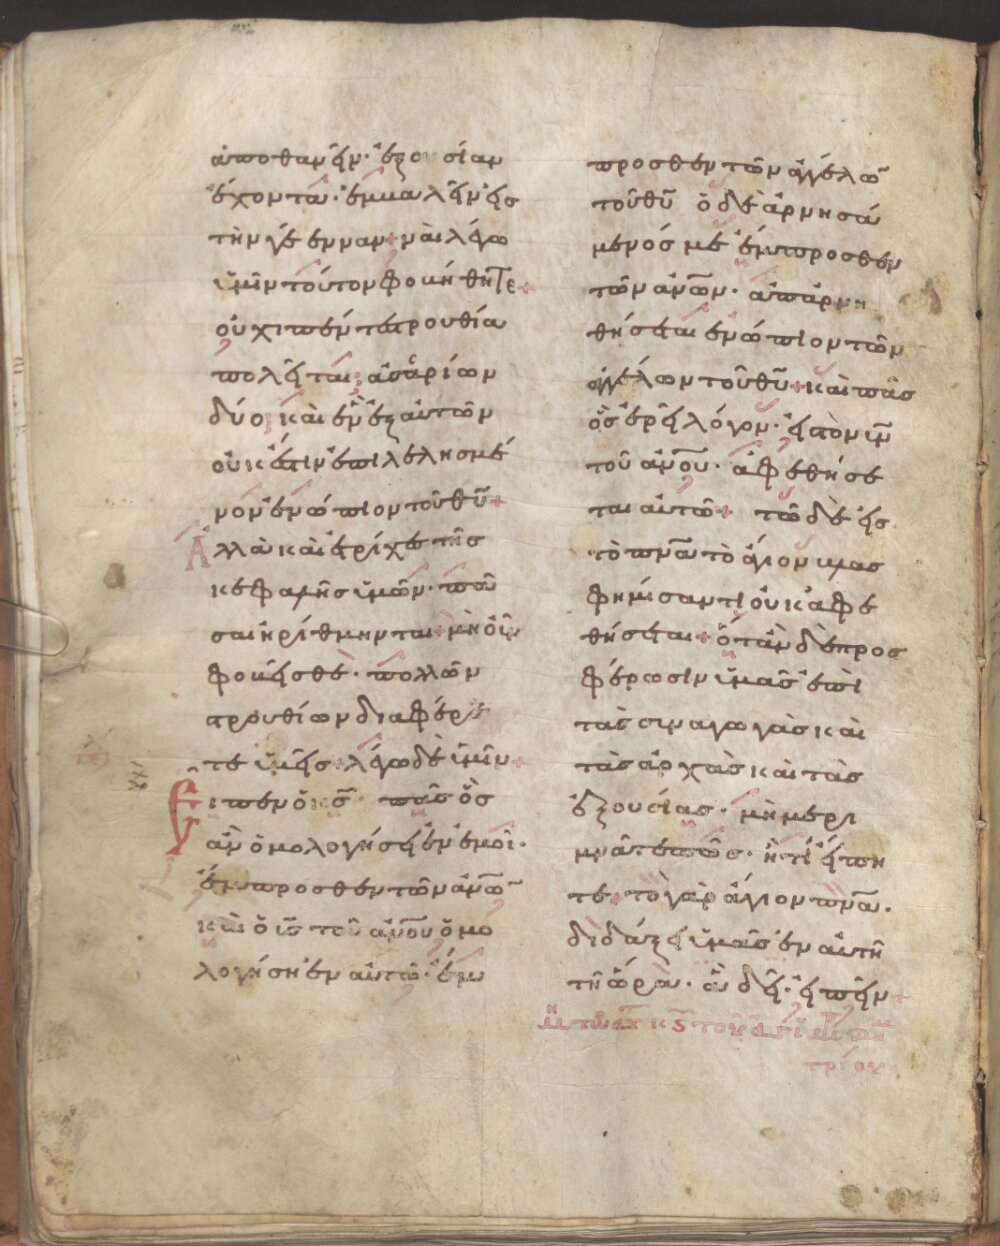 ἀποθανεῖν· ἐξουσίαν
ἔχοντα· ἐμβαλεῖν εἰς
τὴν γέενναν + ναὶ λέγω
ὑμῖν τοῦτον φοβήθητε +
οὐχὶ πέντε στρουθία
πολεῖται ἀσσαρίων
δύο· καὶ ἓν ἐξ αὐτῶν
οὐκ ἔστιν ἐπιλελησμέ
νον ἐνώπιον τοῦ θῦ +
Ἀλλὰ καὶ αἱ τρίχες τῆς
κεφαλῆς ὑμῶν· πᾶ
σαι ἠρίθμηνται + μὴ οὖν
φοβεῖσθε· πολλῶν
στρουθίων διαφέρε
τε ὑμεῖς + λέγω δὲ ὑμῖν +
Εἶπεν ὁ κς πᾶς ὃς
ἂν ὁμολογήσει ἐν ἐμοί·
ἔμπροσθεν τῶν ἀνων
καὶ ὁ ις τοῦ ἀνου ὁμο
λογήση ἐν αὐτῶ· ἔμ
προσθεν τῶν ἀγγέλων
τοῦ θῦ ὁ δὲ ἀρνησά
μενός με ἔμπροσθεν
τῶν ἀνων· ἀπαρνη
θήσεται ἐνώπιον τῶν
ἀγγέλων τοῦ θῦ + καὶ πᾶς
ὃς ἐρεῖ λόγον· εἰς τὸν υν
τοῦ ἀνου· ἀφεθήσε
ται αὐτῶ + τῶ δὲ εἰς
τὸ πνα τὸ ἅγιον βλασ
φημήσαντι οὐκ ἀφε
θήσεται + ὅταν δὲ προσ
φέρωσιν ὑμᾶς ἐπὶ
τὰς συναγωγὰς καὶ
τὰς ἀρχὰς καὶ τὰς
ἐξουσίας· μὴ μερι
μνᾶτε πῶς· ἢ τί εἴπη
τε + τὸ γὰρ ἅγιον πνα·
διδάξει ὑμᾶς ἐν αὐτῆ
τῆ ὥρα· ἃ δεῖ· εἰπεῖν +
τοῦ ἁγί
τρίου